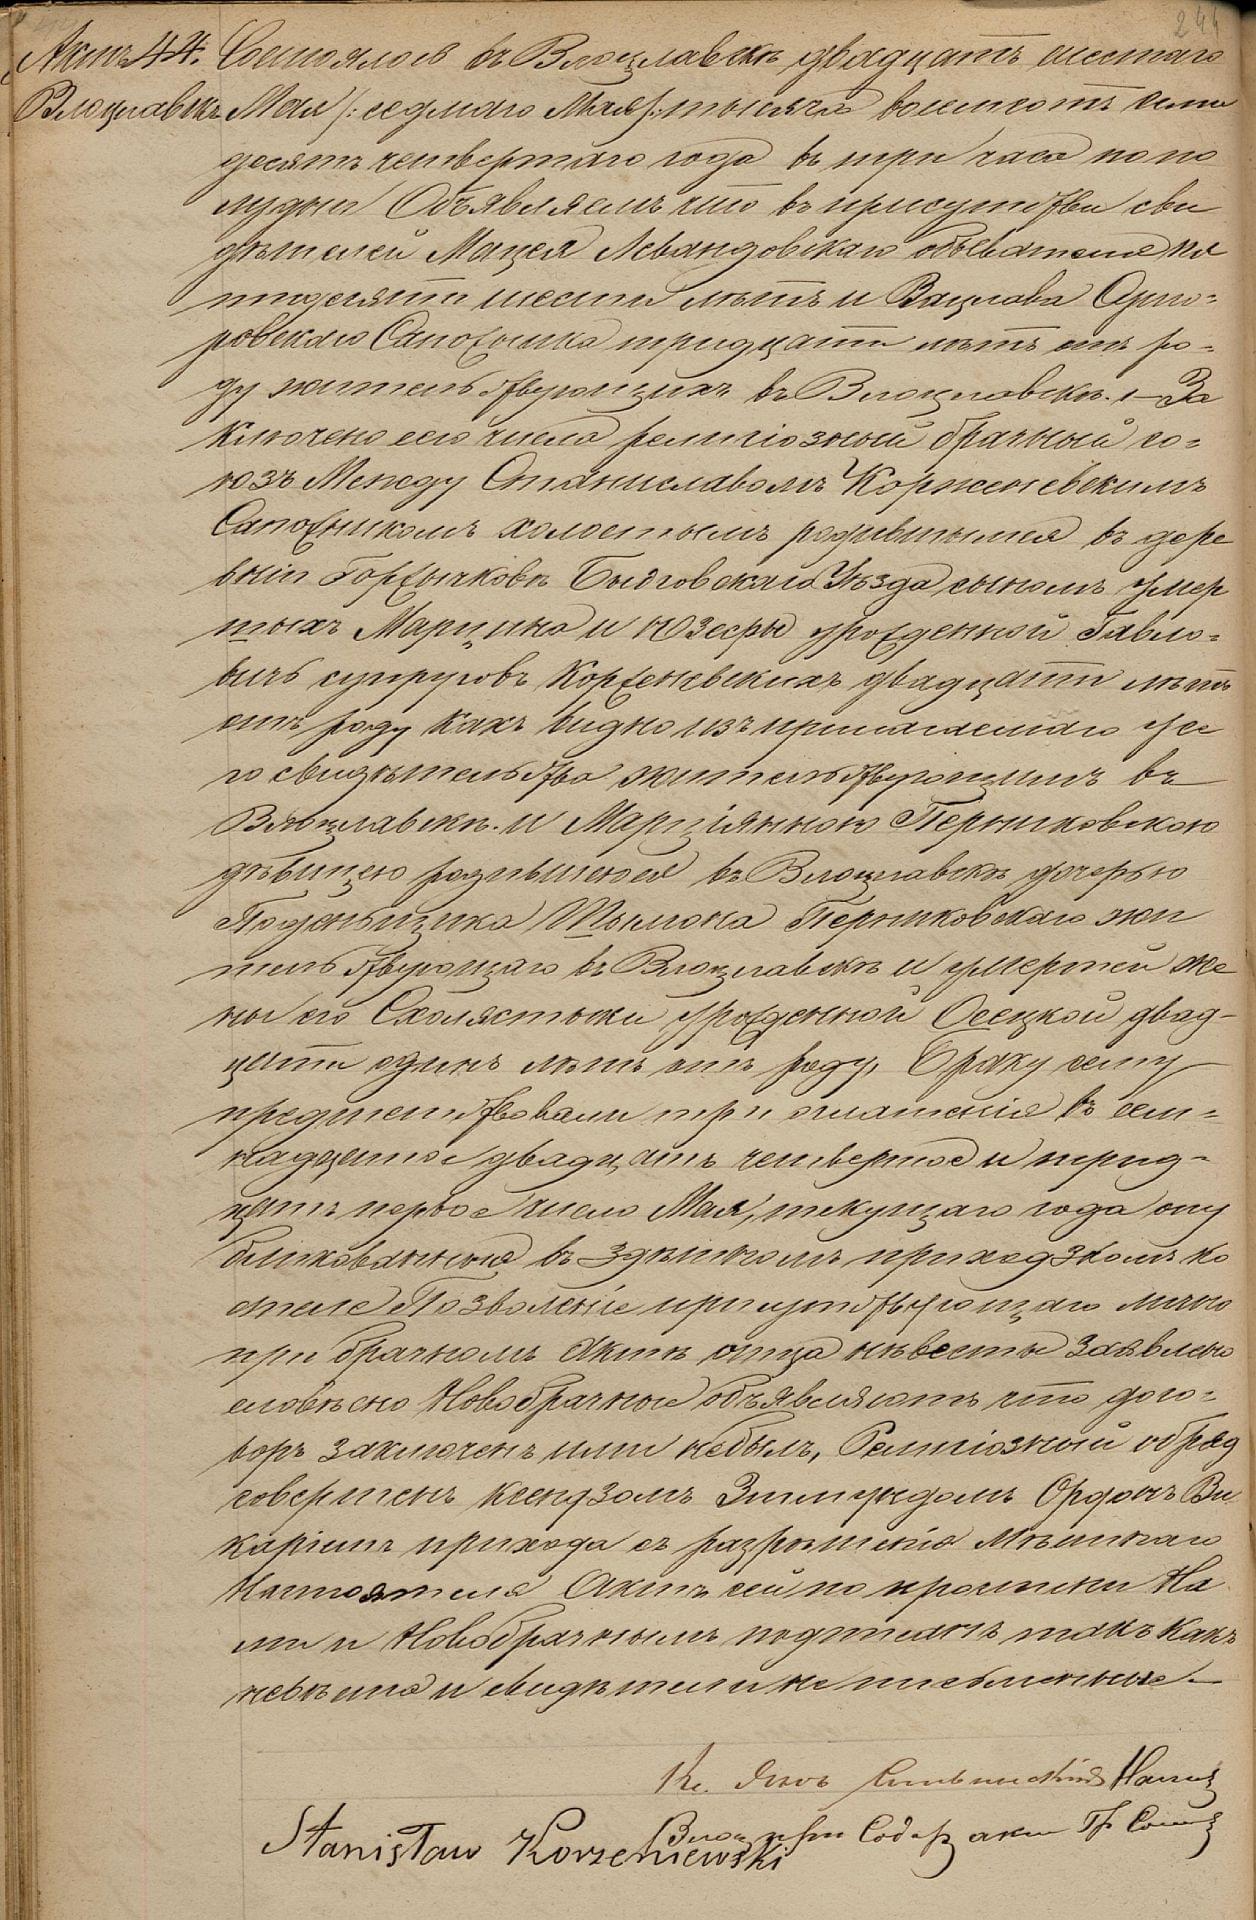 244
Актъ 44. Состоялось въ Влоцлавскѣ двадцать шестаго
Влоцлавскъ Мая /: седмаго Мая :/ тысяча восемсотъ семи
десятъ четвертаго года въ три часа по по
лудни Объявляемъ что въ присутствіи сви
дѣтелей Мацея Левандовскаго обывателя пя
тидесяти шести лѣтъ и Вацлава
Сапожника тридцати лѣтъ отъ ро-
ду жительствующихъ въ Влоцлавскѣ. — За
ключено сего числа религіозный брачный со-
юзъ Между Станиславомъ Корженевскимъ
Сапожникомъ холостымъ родившимся въ дере
вни Уѣзда сыномъ умер
тыхъ Марцина и Юзефы урожденной Павло-
вичъ супруговъ Корженевскихъ двадцати лѣтъ
отъ роду какъ видно изъ прилагаемаго у се
го свидѣтельства жительствующимъ въ
Влоцлавскѣ. и Марціянною Перниковскою
дѣвицею родившеюся въ Влоцлавскѣ дочерью
Поденьщика Шымона Перниковскаго жи
тельствующаго въ Влоцлавскѣ и умершей же
ны его Схолястыки урожденной Осецкой двад-
цати одинъ лѣтъ отъ роду, Браку сему
предшествовали три оглашенія въ сем-
надцатое двадцать четвертое и трид-
цать первое число Мая, текущаго года опу
бликованныя въ здѣшномъ приходзкомъ ко
стелѣ Позволеніе присутствующаго лично
при брачномъ Актѣ отца невѣсты заявлено
словесно Новобрачные объявляютъ что дого-
воръ заключенъ ими небылъ, Религіозный обряд
совершенъ ксендзомъ Зигмундомъ Ордонъ Ви
каріимъ прихода съ разрѣшенія Мѣстнаго
Настоятеля Актъ сей по прочтеніи На
ми и Новобрачнымъ подписанъ такъ какъ
невѣста и свидѣтели не письменные.—
Кс.
Stanisław Korzeniewski